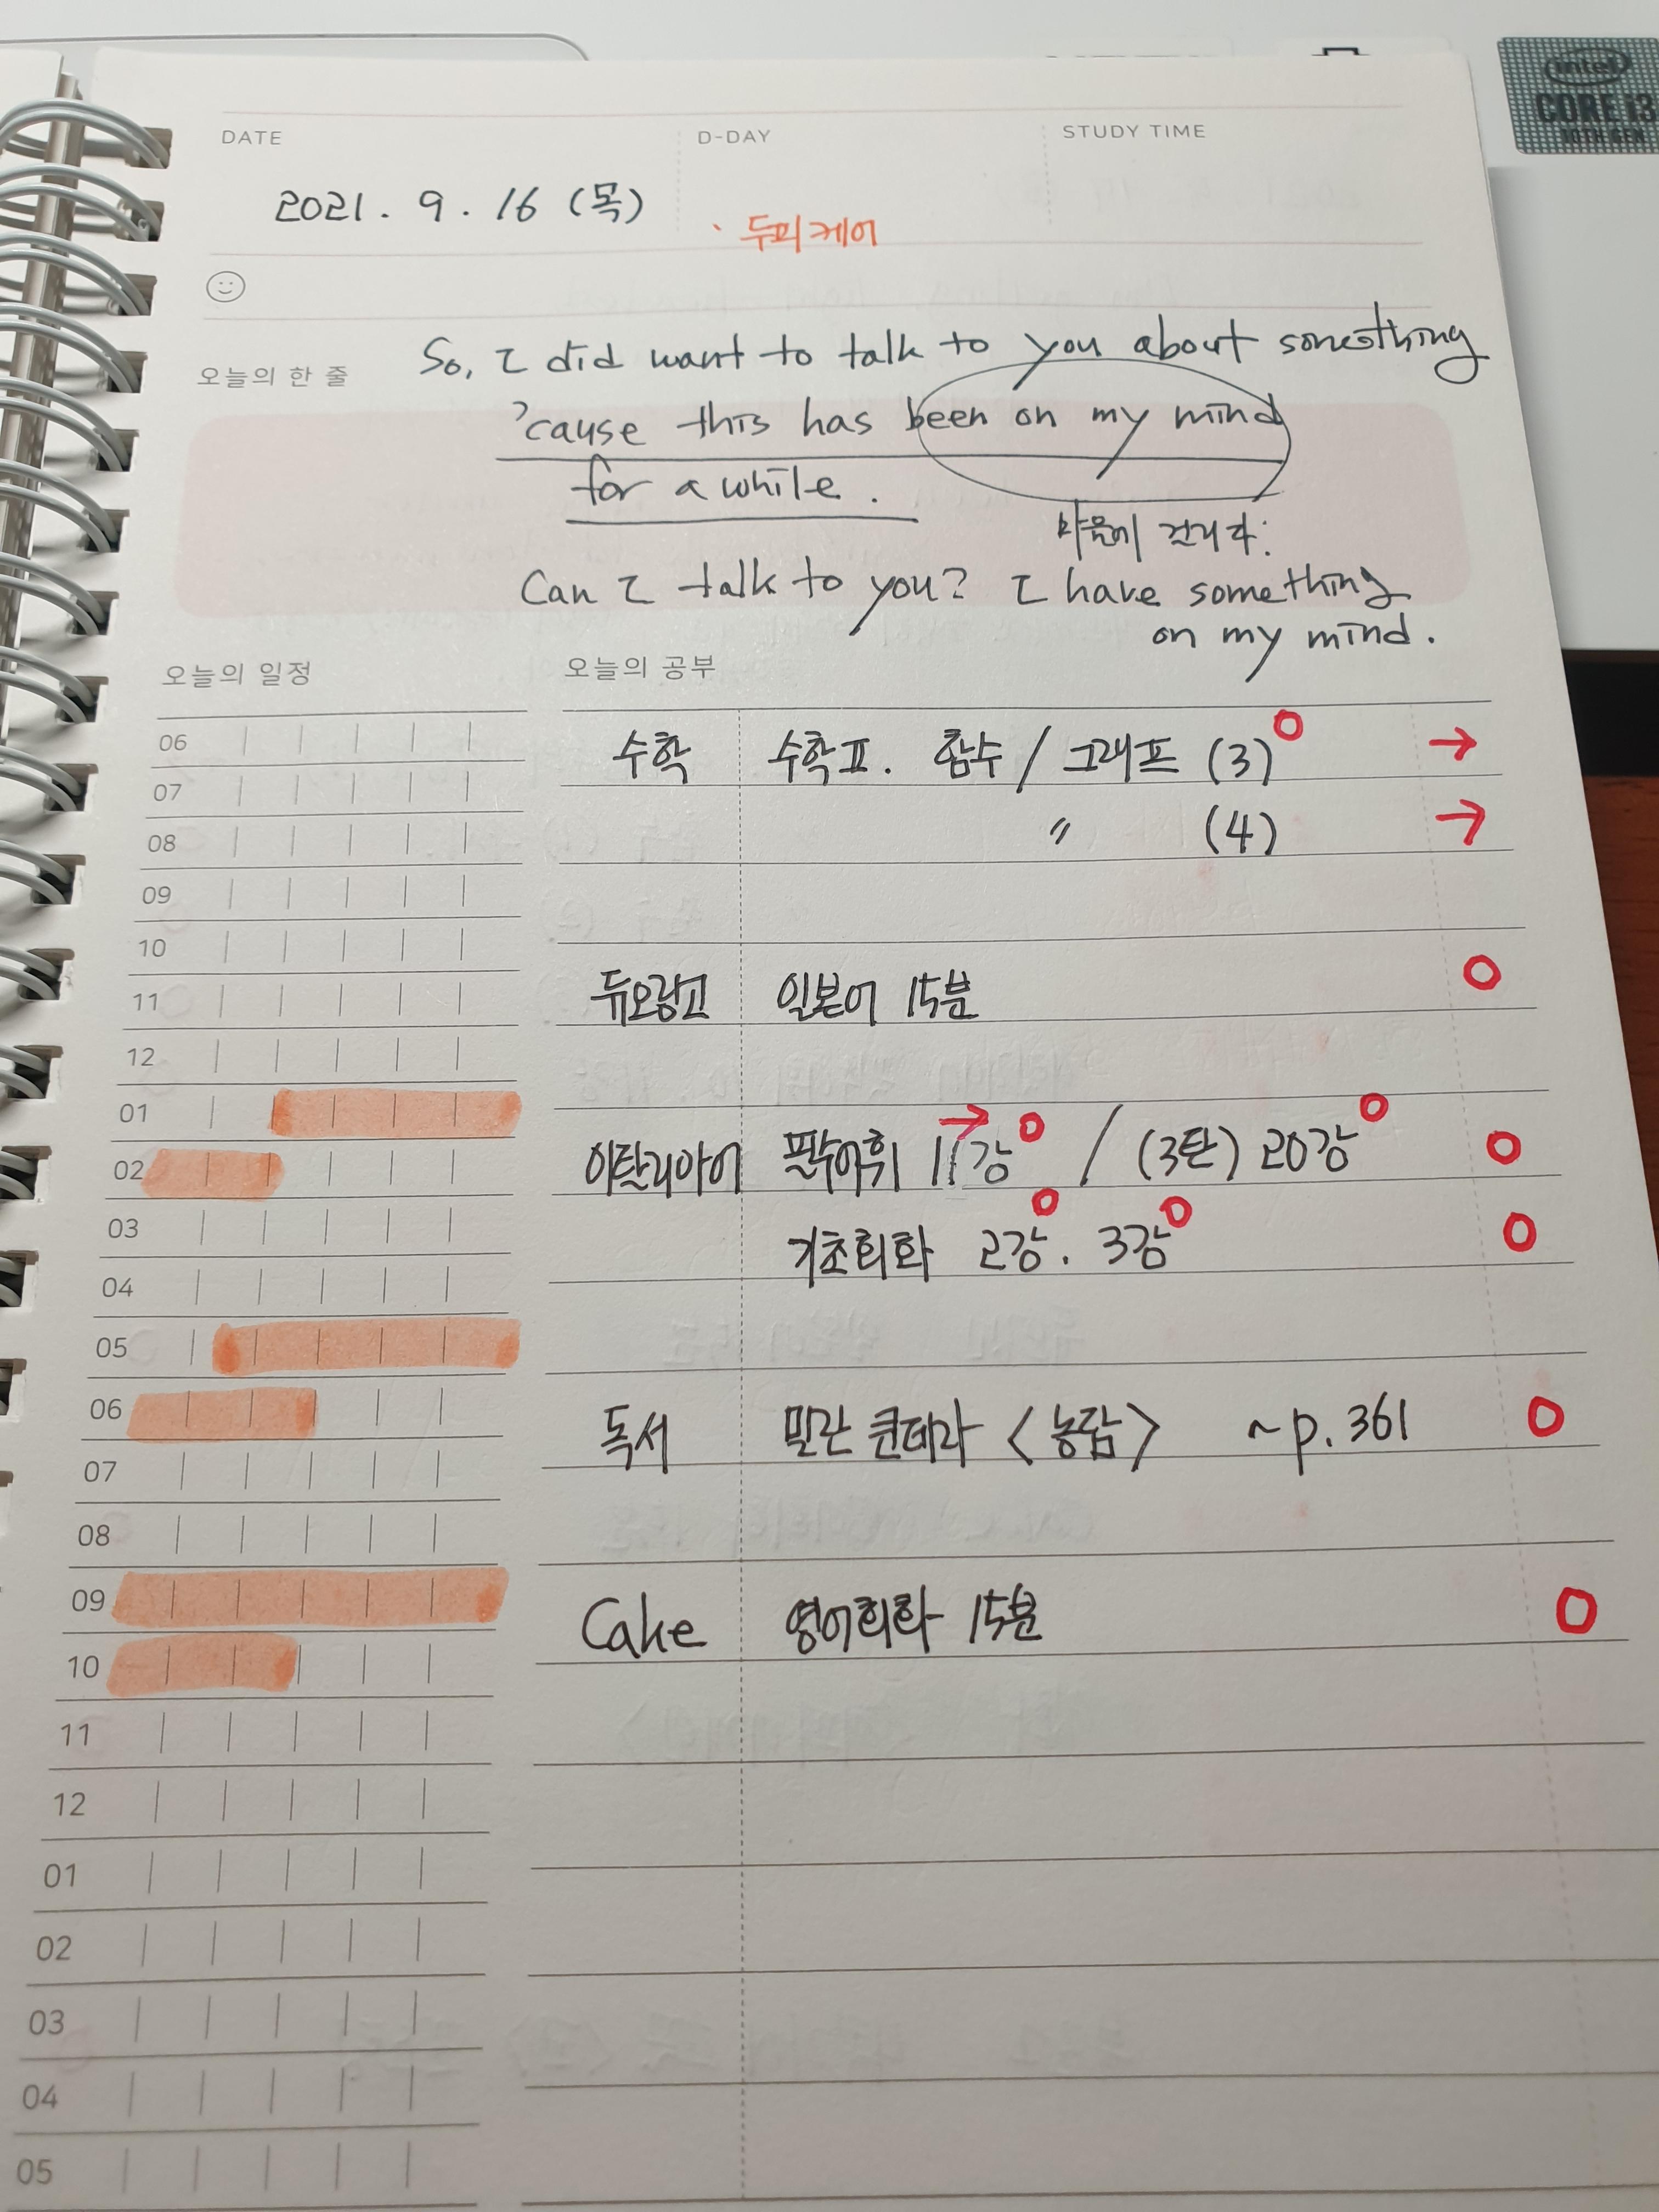 intel
CORE i3
10TH GEN
DATE D-DAY STUDY TIME
2021. 9. 16 (목)
· 두피케어
So, I did want to talk to you about something
오늘의 한 줄
'cause this has been on my mind
for a while.
마음에 걸리다:
Can I talk to you? I have something
on my mind.
오늘의 일정 오늘의 공부
06 수학 수학Ⅱ. 함수 / 그래프 (3) O →
07
08 〃 (4) →
09
10
11 듀오링고 일본어 15분 O
12
01
02 이탈리아어 필수어휘 11강 → O / (3탄) 20강 O O
03 기초회화 2강 O. 3강 O O
04
05
06 독서 밀란 쿤데라 <농담> ~p. 361 O
07
08
09 Cake 영어회화 15분 O
10
11
12
01
02
03
04
05